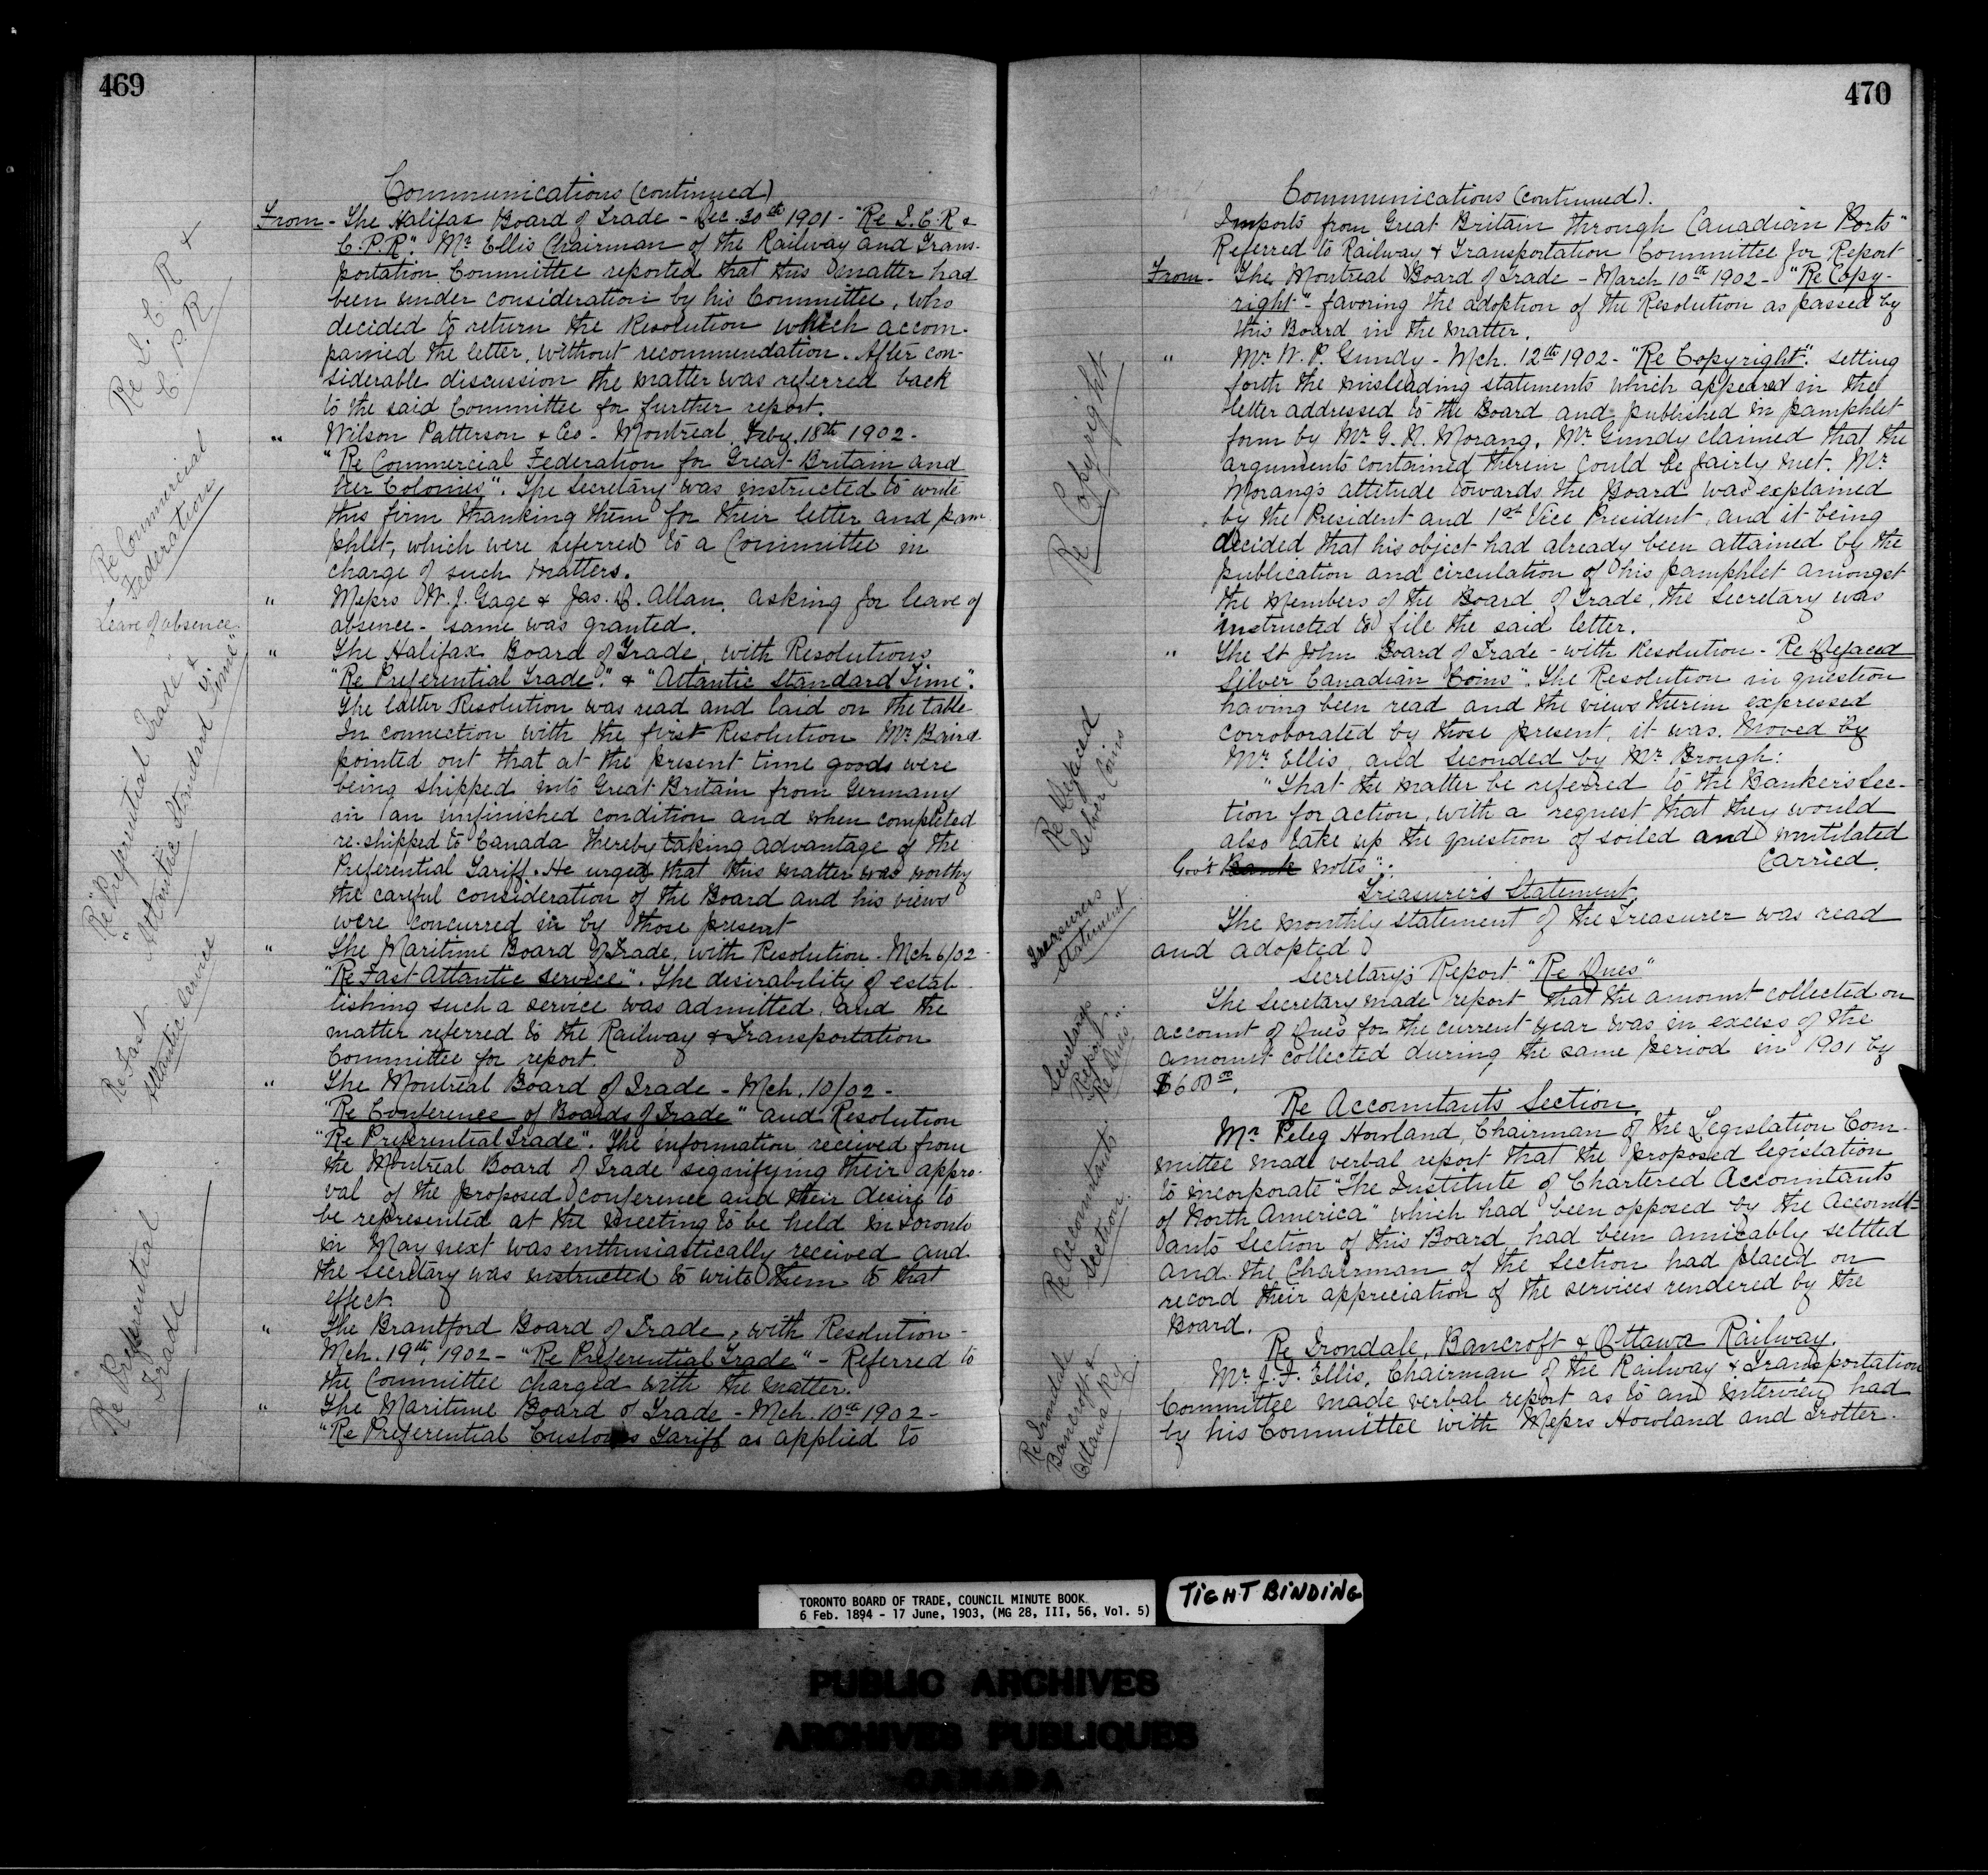 469
Communications (continued)
From - The Halifax Board of Trade - Dec. 30th 1901 - "Re I.C.R &
C.P.R". Mr Ellis Chairman of the Railway and Trans-
portation Committee reported that this matter had
been under consideration by his Committee, who
decided to return the Resolution which accom-
panied the letter, without recommendation. After con-
siderable discussion the matter was referred back
to the said Committee for further report.
Re I.C.R &
C.P.R
" Wilson Patterson & Co - Montreal, Feby. 18th 1902 -
"Re Commercial Federation for Great Britain and
her Colonies". The Secretary was instructed to write
this firm thanking them for their letter and pam
phlet, which were referred to a Committee in
charge of such matters.
Re Commercial
Federation
" Messrs W. J. Gage & Jas. D. Allan, asking for leave of
absence - same was granted.
Leave of absence
" The Halifax Board of Trade, with Resolutions
"Re Preferential Trade". & "Atlantic Standard Time".
The latter Resolution was read and laid on the table
In connection with the first Resolution Mr Baird
pointed out that at the present time goods were
being shipped into Great Britain from Germany
in an unfinished condition and when completed
re-shipped to Canada thereby taking advantage of the
Preferential Tariff. He urged that this matter was worthy
the careful consideration of the Board and his views
were concurred in by those present
Re "Preferential Trade" &
"Atlantic Standard Time"
" The Maritime Board of Trade, with Resolution - Mch 6/02 -
"Re Fast Atlantic Service". The desirability of estab
lishing such a service was admitted, and the
matter referred to the Railway & Transportation
Committee for report.
Re Fast
Atlantic Service
" The Montreal Board of Trade - Mch. 10/02 -
"Re Conference of Boards of Trade" and Resolution
"Re Preferential Trade". The information received from
the Montreal Board of Trade signifying their appro-
val of the proposed conference and their desire to
be represented at the meeting to be held in Toronto
in May next was enthusiastically received and
the Secretary was instructed to write them to that
effect.
" The Brantford Board of Trade, with Resolution -
Mch. 19th, 1902 - "Re Preferential Trade" - Referred to
the Committee charged with the matter.
" The Maritime Board of Trade - Mch. 10th 1902 -
"Re Preferential Customs Tariff as applied to
Re Preferential
Trade
470
Communications (continued).
Imports from Great Britain through Canadian Ports"
Referred to Railway & Transportation Committee for Report
From - The Montreal Board of Trade - March 10th 1902 - "Re Copy-
right" - favoring the adoption of the Resolution as passed by
this Board in the matter.
" Mr W. P. Gundy - Mch. 12th 1902 - "Re Copyright". setting
forth the misleading statements which appeared in the
letter addressed to the Board and published in pamphlet
form by Mr G. N. Morang. Mr Gundy claimed that the
arguments contained therein could be fairly met. Mr
Morang's attitude towards the Board was explained
by the President and 1st Vice President, and it being
decided that his object had already been attained by the
publication and circulation of his pamphlet amongst
the Members of the Board of Trade, the Secretary was
instructed to file the said letter.
Re Copyright
" The St John Board of Trade - with Resolution - Re Defaced
Silver Canadian Coins". The Resolution in question
having been read and the views therein expressed
corroborated by those present, it was, Moved by
Mr Ellis, and Seconded by Mr Brough:
"That the matter be referred to the Banker's Sec-
tion for action, with a request that they would
also take up the question of soiled and mutilated
Gov't Bank notes". Carried.
Re Defaced
Silver Coins
Treasurer's Statement
The monthly statement of the Treasurer was read
and adopted
Treasurers
Statement
Secretary's Report "Re Dues"
The Secretary made report that the amount collected on
account of Dues for the current year was in excess of the
amount collected during the same period in 1901 by
$600 00.
Secretarys
Report
"Re Dues"
Re Accountants Section.
Mr Peleg Howland, Chairman of the Legislation Com-
mittee made verbal report that the proposed legislation
to incorporate "The Institute of Chartered Accountants
of North America" which had been opposed by the Account-
ants Section of this Board, had been amicably settled
and the Chairman of the Section had placed on
record their appreciation of the services rendered by the
Board.
Re Accountants
Section.
Re Irondale, Bancroft & Ottawa Railway.
Mr. J. F. Ellis, Chairman of the Railway & Transportation
Committee made verbal report as to an interview had
by his Committee with Messrs Howland and Trotter.
Re Irondale
Bancroft &
Ottawa Ry.
TORONTO BOARD OF TRADE, COUNCIL MINUTE BOOK.
6 Feb. 1894 - 17 June, 1903, (MG 28, III, 56, Vol. 5)
TIGHT BINDING
PUBLIC ARCHIVES
ARCHIVES PUBLIQUES
CANADA